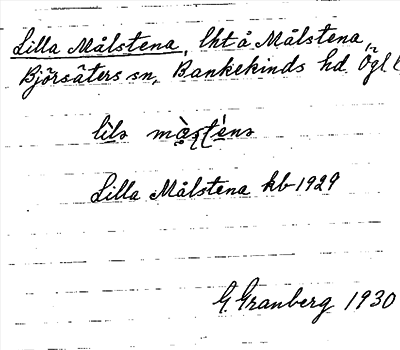 Lilla Målstena, lht å Målstena,
Björsäters sn, Bankekinds hd. Ögl.
Lilla Målstena kb 1929
G. Granberg 1930